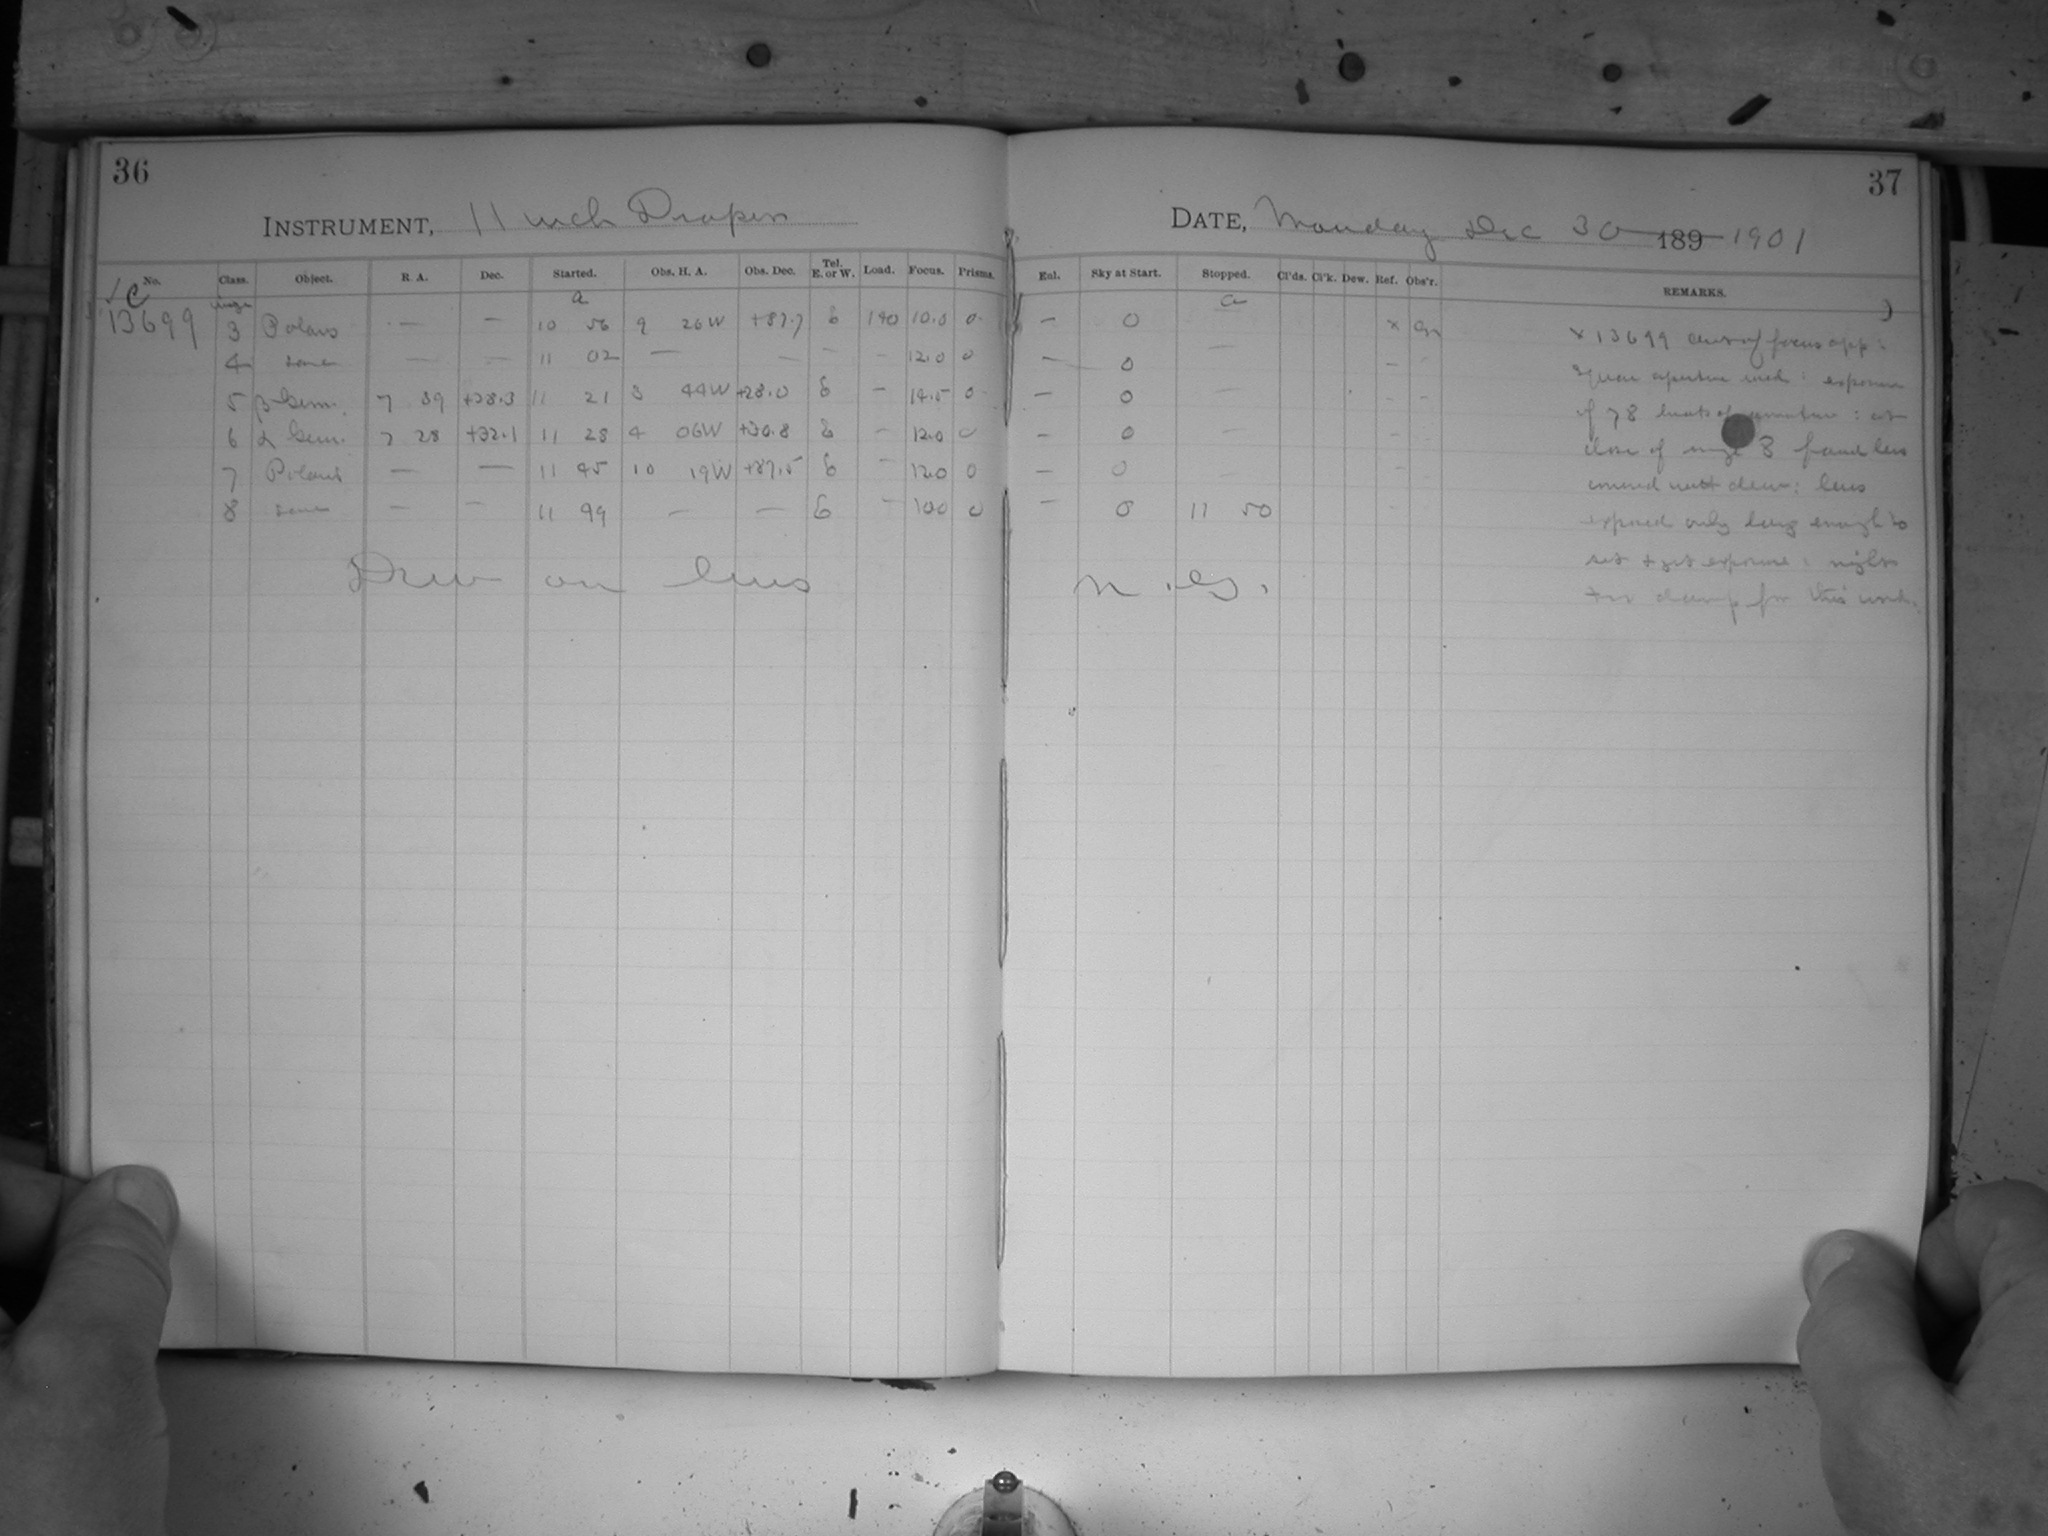 36
37
INSTRUMENT, 11 inch Draper
DATE, Monday Dec 30 189 1901
No. Class. Object. R. A. Dec. Started. Obs. H. A. Obs. Dec. Tel. E. or W. Load. Focus. Prisms. Eul. Sky at Start. Stopped. Cl'ds. Cl'k. Dew. Ref. Obs'r. REMARKS.
C image a a
13699 3 Polaris — — 10 56 9 26W +87.7 E 140 10.0 0 — 0 x
4 same — — 11 02 — — — — 12.0 0 — 0 — —
5 β Gem. 7 39 +28.3 11 21 3 44W +28.0 E — 14.5 0 — 0 — — —
6 α Gem. 7 28 +32.1 11 28 4 06W +30.8 E — 12.0 0 — 0 — — —
7 Polaris — — 11 45 10 19W +87.5 E — 12.0 0 — 0 — —
8 same — — 11 49 — — E — 10.0 0 — 0 11 50 —
Dew on lens n.G.
x 13699 out of focus app:
square aperture used: exposure
of 78 beats of : at
close of image 8 found lens
covered with dew: lens
exposed only long enough to
set + get exposure: night
too damp for this work.